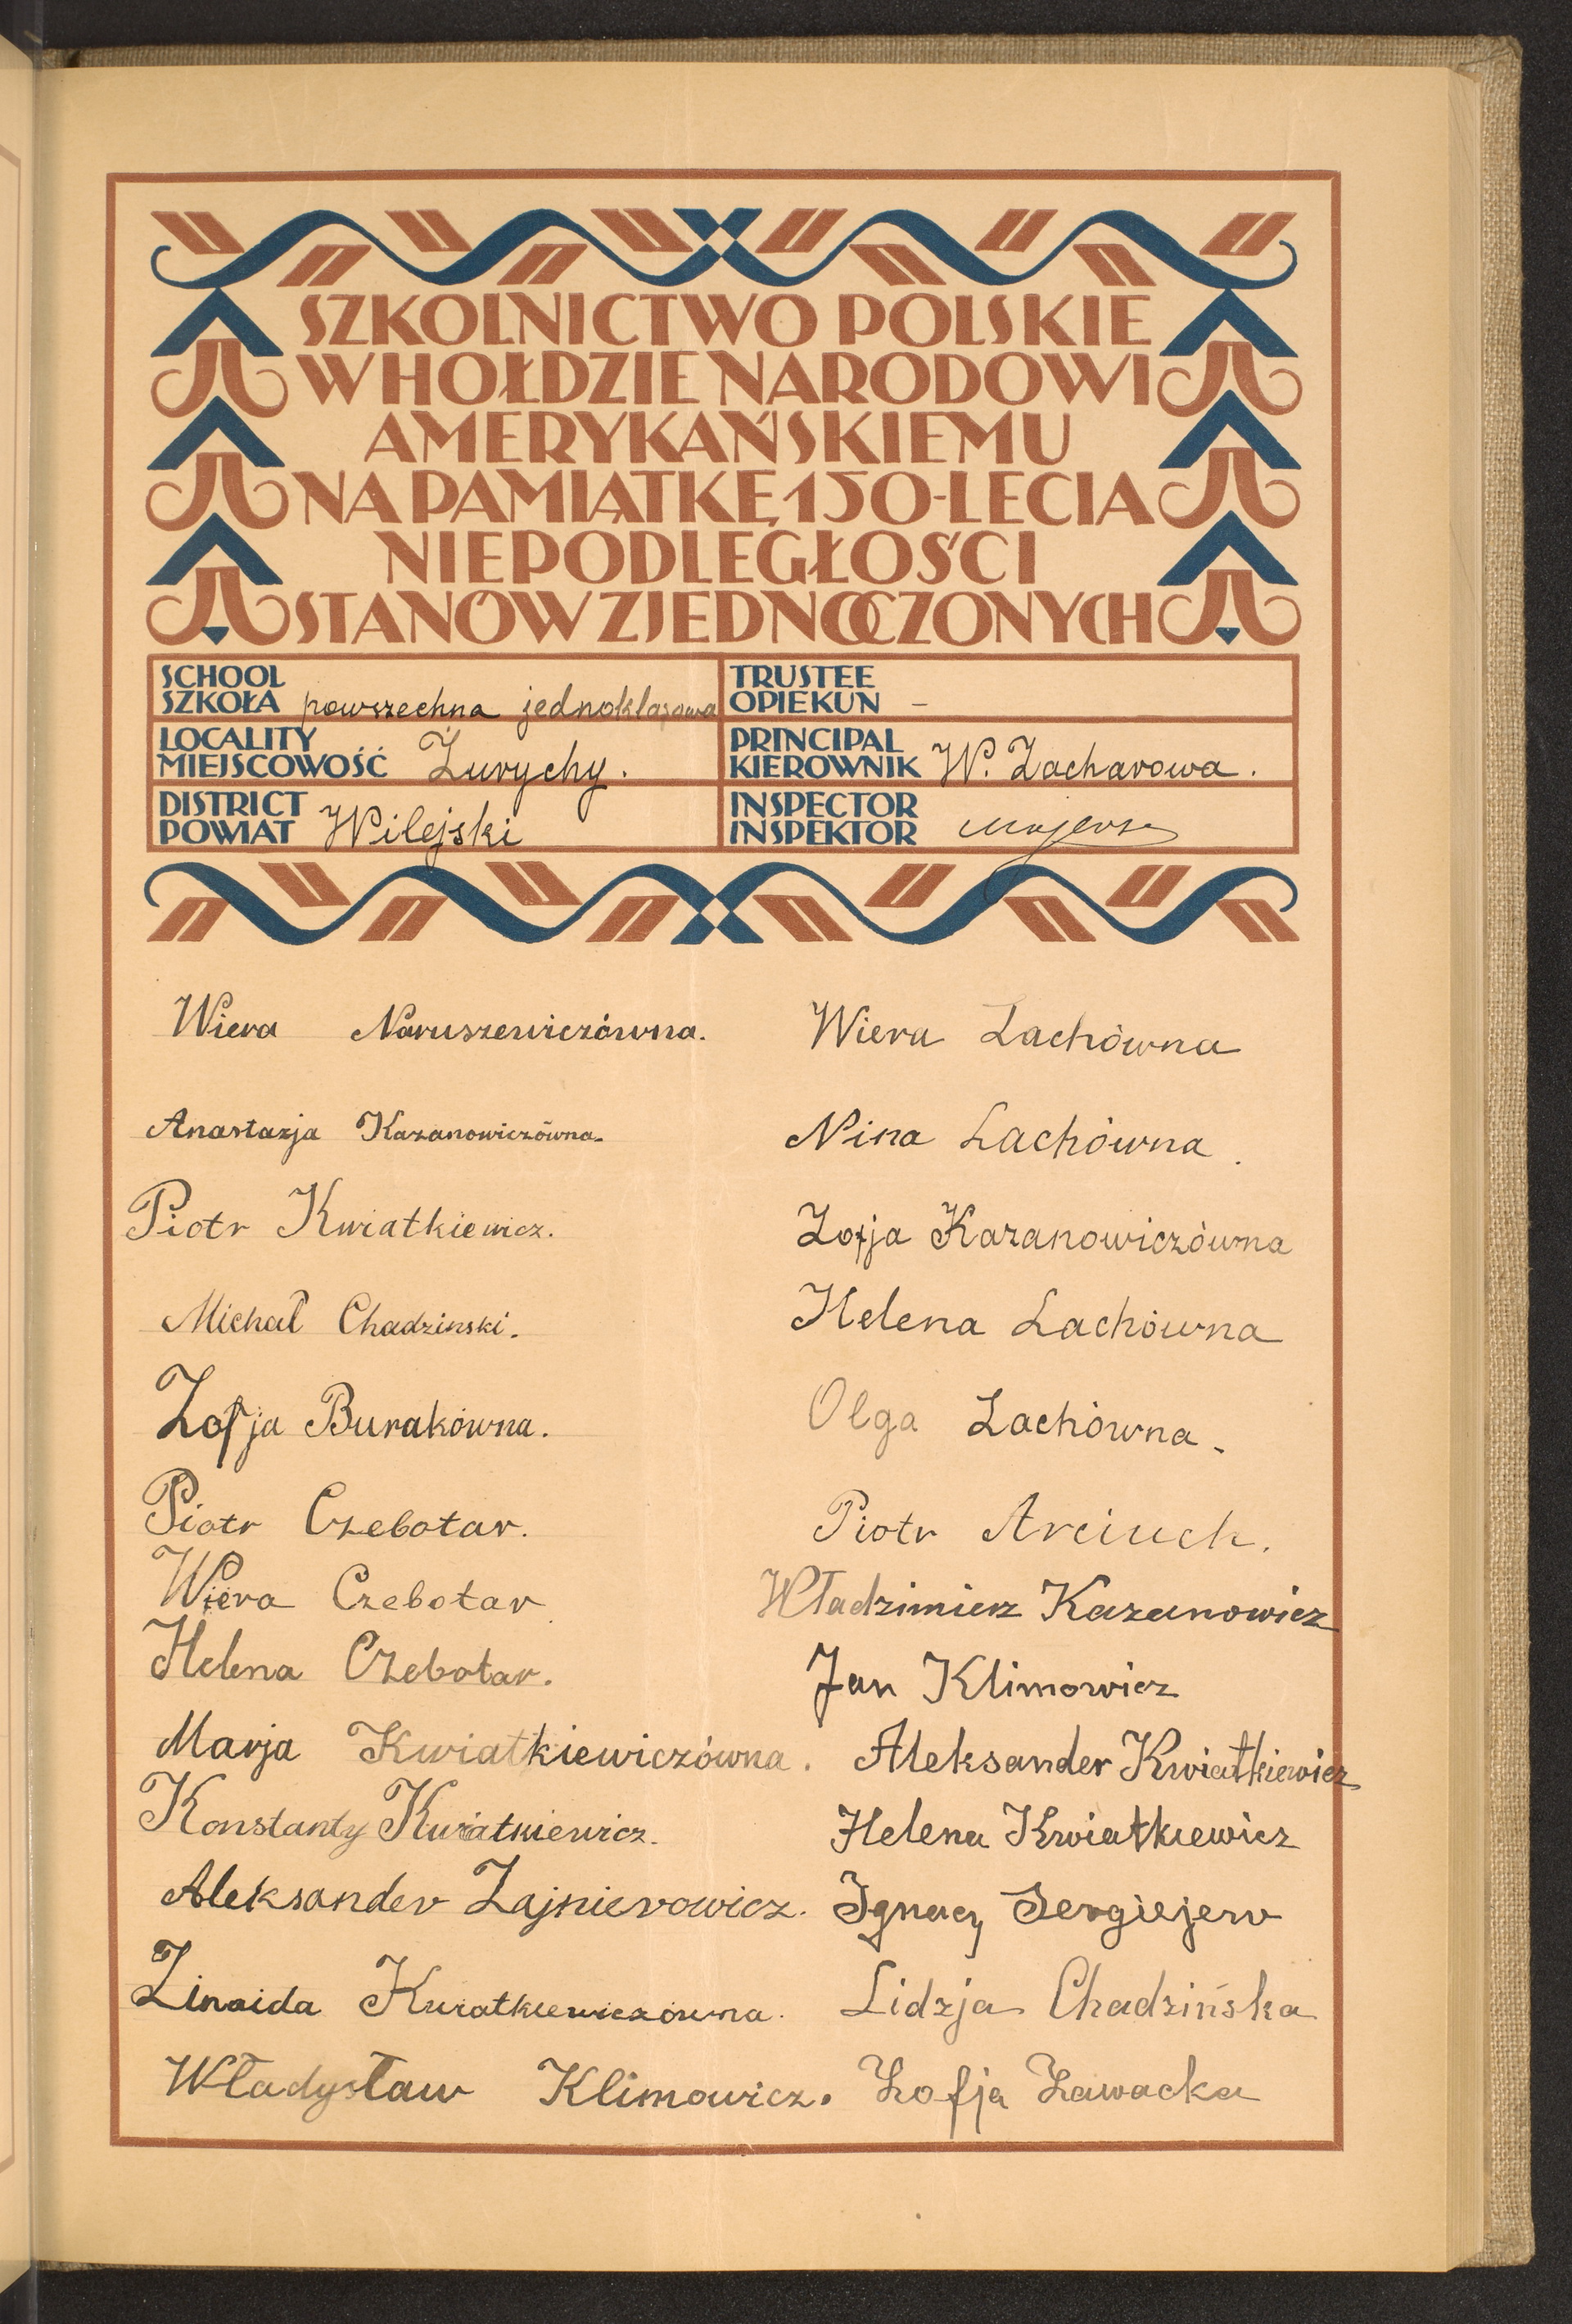 SZKOLNICTWO POLSKIE
W HOŁDZIE NARODOWI
AMERYKAŃSKIEMU
NA PAMIĄTKĘ 150-LECIA
NIEPODLEGŁOŚCI
STANÓW ZJEDNOCZONYCH
SCHOOL
SZKOŁA powszechna jednoklasowa
TRUSTEE
OPIEKUN –
LOCALITY
MIEJSCOWOŚĆ Żurychy.
PRINCIPAL
KIEROWNIK W. Zacharowa.
DISTRICT
POWIAT Wilejski
INSPECTOR
INSPEKTOR
Wiera Naruszewiczówna.
Anastazja Kazanowiczówna.
Piotr Kwiatkiewicz.
Michał Chadzinski.
Zofja Burakówna.
Piotr Czebotar.
Wiera Czebotar
Helena Czebotar.
Marja Kwiatkiewiczówna.
Konstanty Kwiatkiewicz.
Aleksander Zajnierowicz.
Zinaida Kwiatkiewiczówna.
Władysław Klimowicz.
Wiera Lachówna
Nina Lachówna.
Zofja Kazanowiczówna
Helena Lachówna
Olga Lachówna.
Piotr Arciuch.
Władzimierz Kazanowicz
Jan Klimowicz
Aleksander Kwiatkiewicz
Helena Kwiatkiewicz
Ignacy Sergiejew
Lidzja Chadzińska
Zofja Zawacka